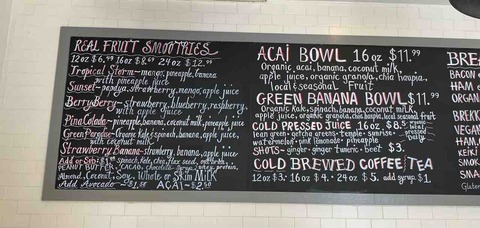 REAL FRUIT SMOOTHIES
12 oz $6.99 16oz $8.69 24 oz $12.99
Tropical Storm - mango, pineapple, banana
with pineapple juice
Sunset - papaya, strawberry, mango, apple juice
BerryBerry - strawberry, blueberry, raspberry,
with apple juice
Pina Colada - pineapple, banana, coconut milk, pineapple juice
Green Paradise - Organic kale & spinach, banana, apple juice,
with coconut milk
Strawberry Banana - strawberry, banana, apple juice
Add or Sub: $1 spinach, kale, chia, flax seed,
PEANUT BUTTER, CACAO, chocolate, protein,
Almond, Coconut, Soy, Whole or Skim Milk
Add Avocado - $1.50 AÇAI - $2.50
ACAI BOWL 16 oz $11.99
Organic acai, banana, coconut milk,
apple juice, organic granola, chia, houpia,
local & seasonal Fruit
GREEN BANANA BOWL $11.99
Organic Kale, spinach, banana, coconut milk,
apple juice, organic granola, chia, houpia, local seasonal fruit
COLD PRESSED JUICE 16 oz $8.95
lean green • getcha greens • temple • sunrise •
watermelon • pink lemonade • pineapple
SHOTS - ginger • ginger tumeric • beet $3.
COLD BREWED COFFEE TEA
12 oz $3. • 16 oz $4. • 24 oz $5. add syrup $1.
BRE
BACON
HAM
ORGAN
BREKK
VEGAN
HAM
KEIKI
SMOK
EGG
Glute